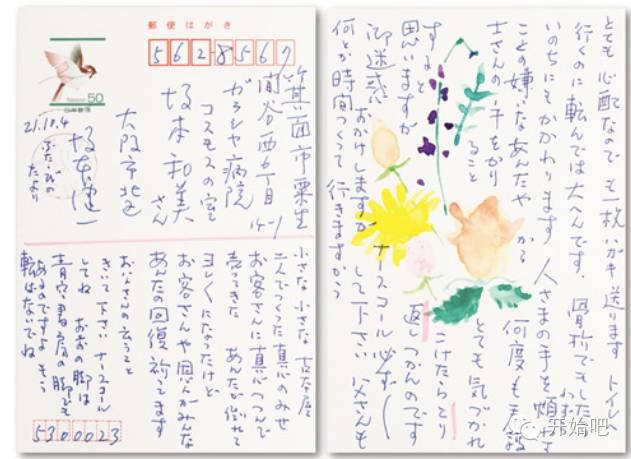 郵便はがき
562-8567
50
箕面市粟生
間谷西6丁目
14-1
ガラシャ病院
コスモスの室
坂本和美さん
大阪市北区
坂本健一
21.10.4
たより
小さな小さな古本屋
二人でつくった真心のみせ
お客さんに真心つつんで
売ってきた あんたが倒れて
になったけど
お客さんや恩人がみんな
あんたの回復祈ってます
の云うこと
きいて下さい ナースコール
してね お前の脚は
青空書房の脚でも
あるのですよ もう
転ばないでね
5300023
とても心配なのでも一枚ハガキ送ります トイレへ
行くのに転んでは大へんです、骨折でもしたら
いのちにもかかわります 人さまの手を煩わす
ことの嫌いなあんたやから 何度も看護
士さんの手をかりること とても気づかれ
すると思いますが こけたらとり返しつかんのです
御迷惑おかけしますが ナースコール必ず
して下さい 父さんも
何とか時間つくって行きますから
开始吧